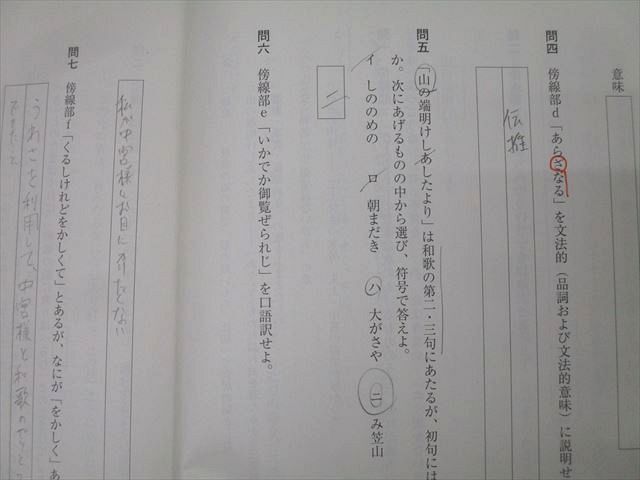 意味
問四 傍線部d「あらさなる」を文法的(品詞および文法的意味)に説明せ
伝推
問五 「山の端明けしあしたより」は和歌の第二・三句にあたるが、初句には
か。次にあげるものの中から選び、符号で答えよ。
イ しののめの ロ 朝まだき ハ 大がさや ニ み笠山
ニ
問六 傍線部e「いかでか御覧ぜられじ」を口語訳せよ。
私が中宮様にお目にかけたくない
問七 傍線部f「くるしけれどをかしくて」とあるが、なにが「をかしく」あ
うわさを利用して、中宮様と和歌の